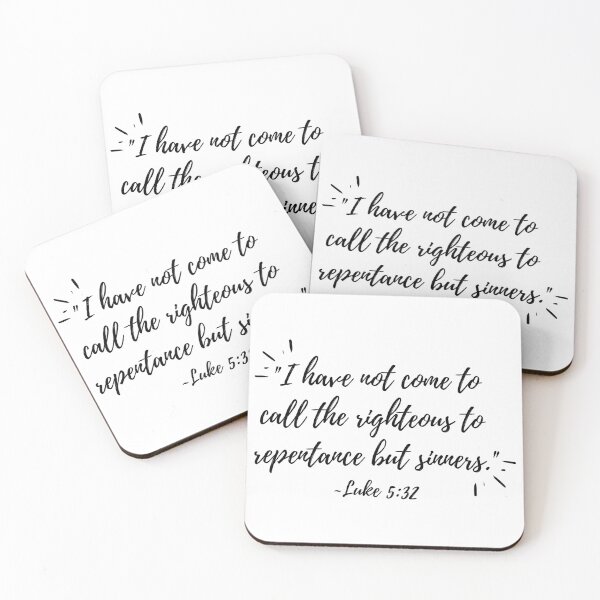 "I have not come to
call the righteous t
inne
"I have not come to
call the righteous to
repentance but sinners."
"I have not come to
call the righteous to
repentance but si
~Luke 5:3
"I have not come to
call the righteous to
repentance but sinners."
~Luke 5:32